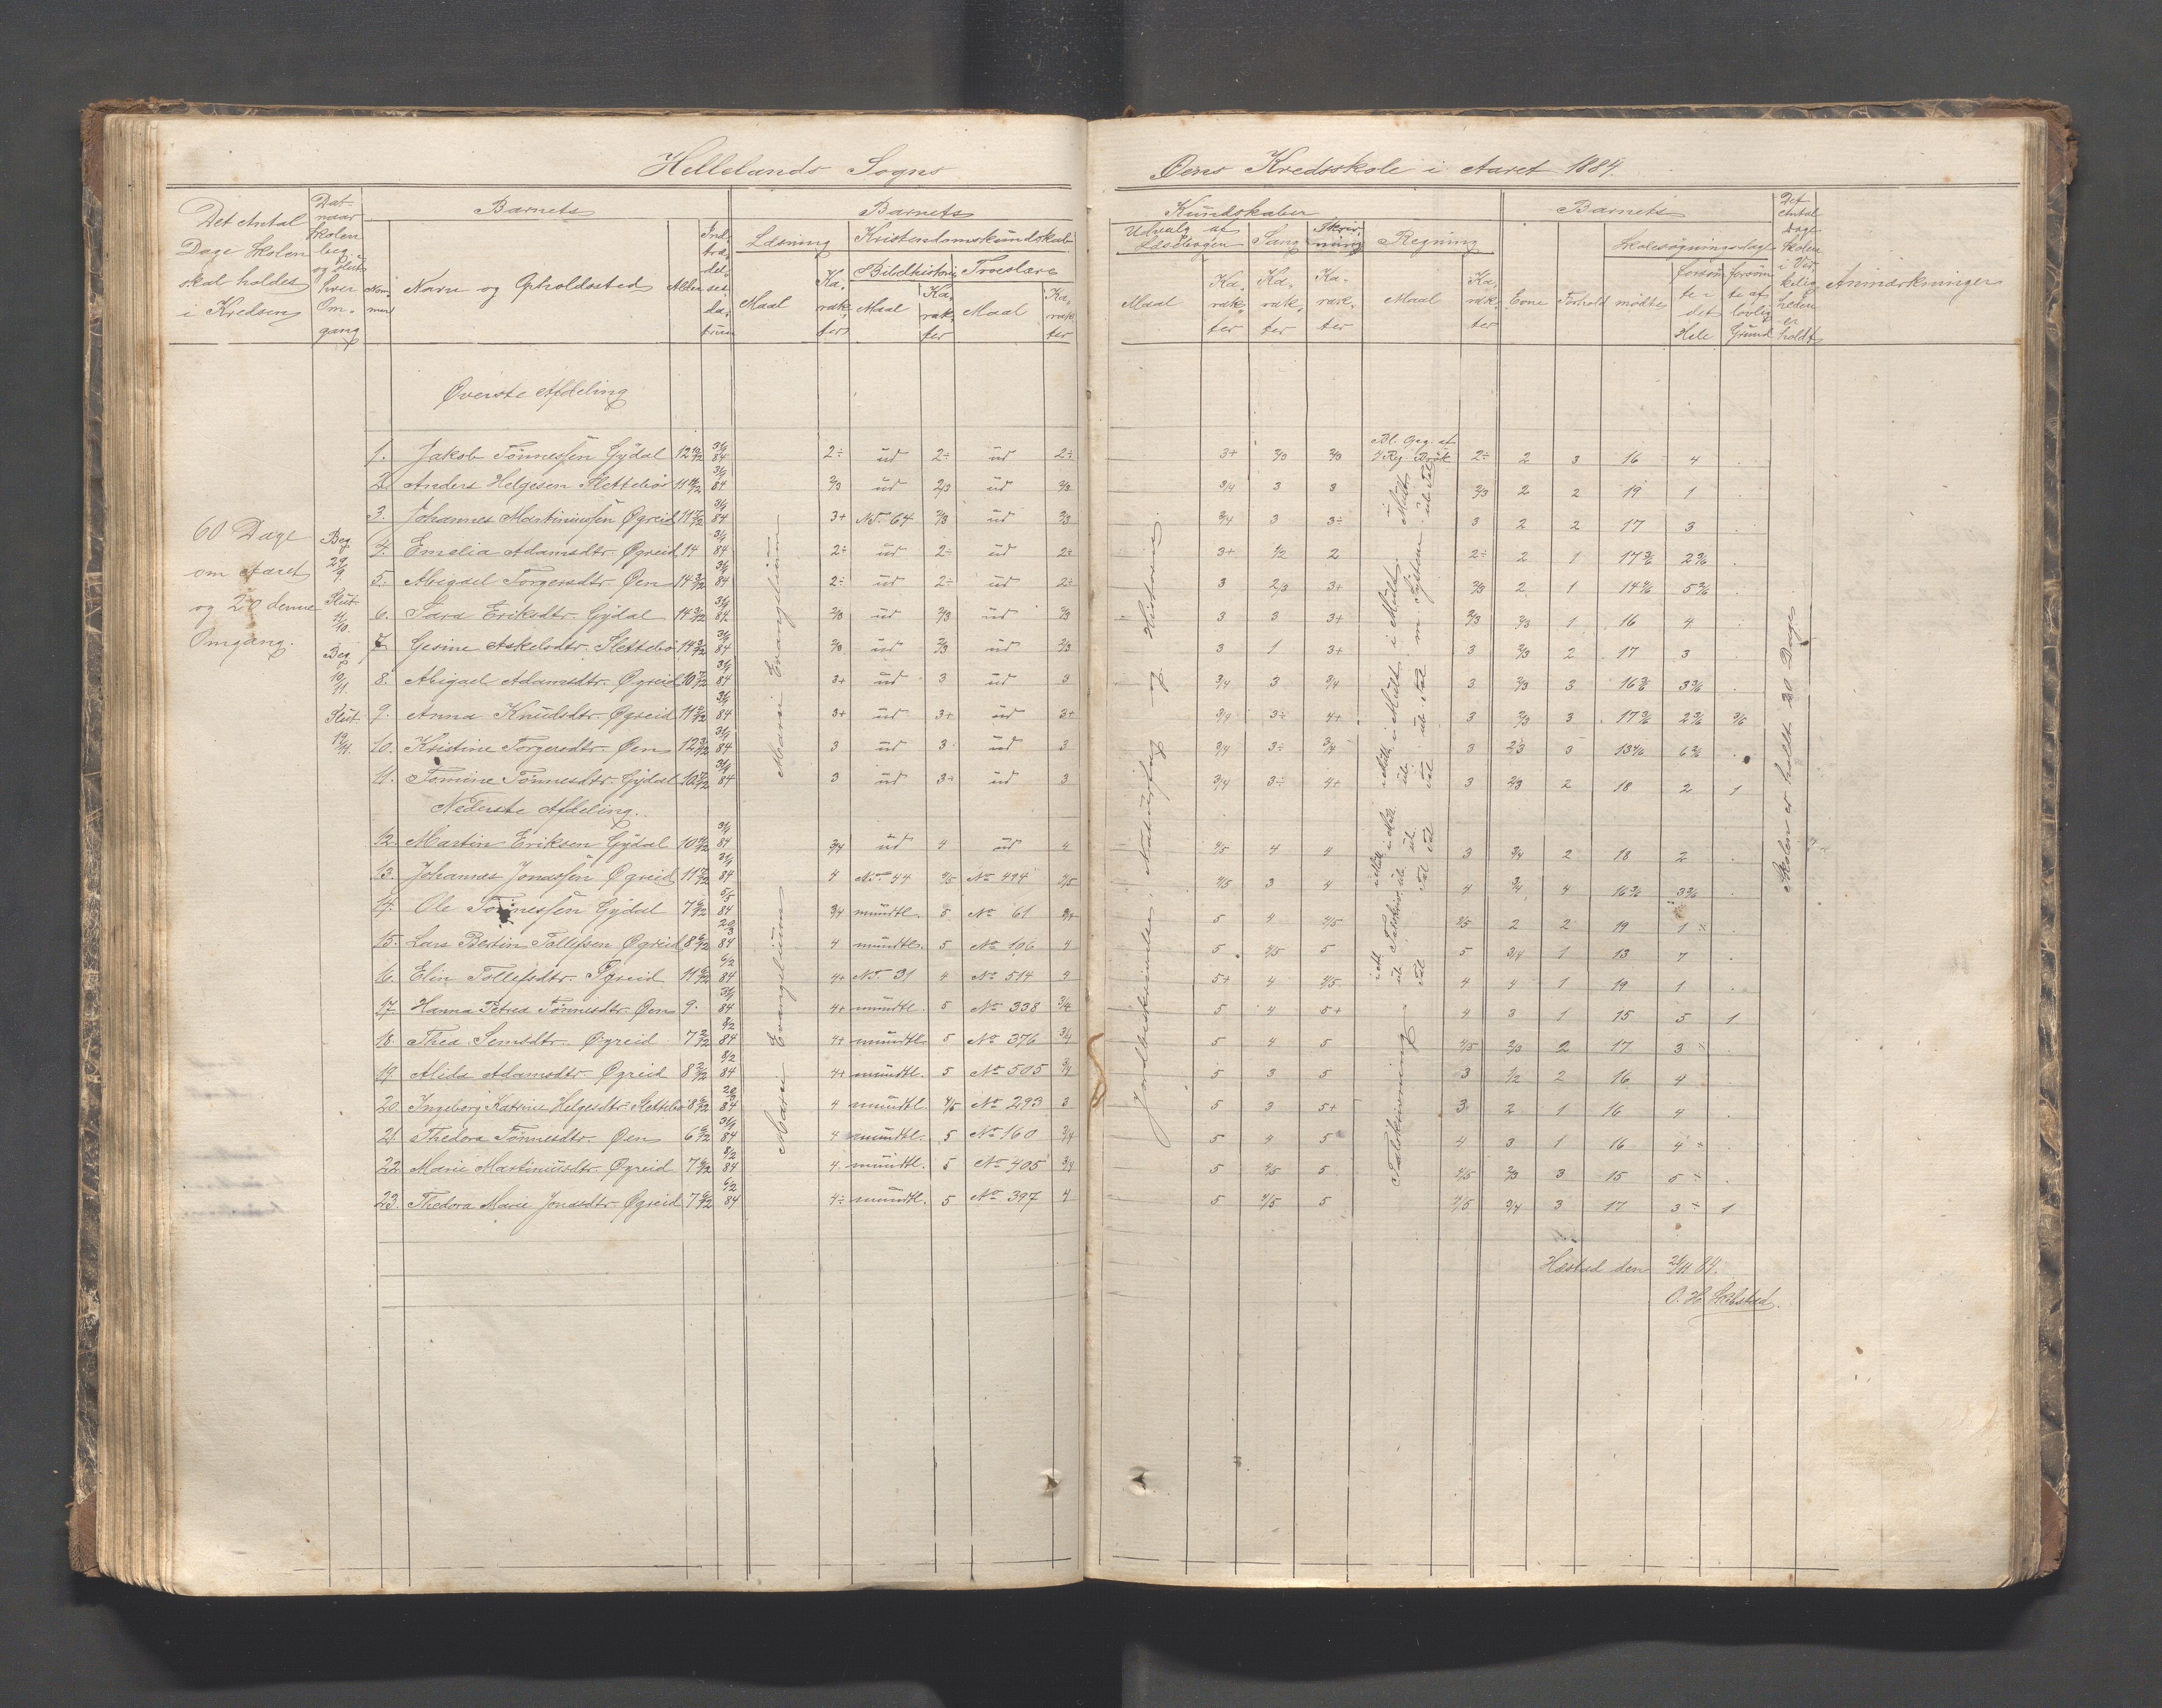 Hellelands Sogns
Øens Kredsskole i Aaret 1884.
Det Antal Dage Skolen skal holdes i Kredsen
Dat. naar Skolen beg. og slut. hver Omgang
Barnets
Nommer
Navn og Opholdssted
Alder
Indtrædelsesdatum
Barnets
Læsning
Maal
Karakter
Kristendomskundskab
Bibelhistorie
Maal
Karakter
Troeslære
Maal
Karakter
Kundskaber
Udvalg af Læsebogen
Maal
Karakter
Sang
Karakter
Skrivning
Karakter
Regning
Maal
Karakter
Barnets
Evne
Forhold
Skolesøgningsdage
mødte
forsømte i det Hele
forsømte af lovlig Grund
Det Antal Dage Skolen i Virkeligheden er holdt
Anmærkninger
Øverste Afdeling
60 Dage om Aaret og 20 denne Omgang.
Beg. 29/9. Slut. 11/10. Beg. 10/11. Slut. 19/11.
Marci Evangelium
Jordbeskrivelse, Naturfag og Historie.
Skolen er holdt 20 Dage.
1. Jakob Tønnessen Gydal 12 10/12 31/1 84 2÷ ud 2÷ ud 2÷ 3+ 2/3 2/3 2÷ 2 3 16 4 .
2. Anders Helgesen Slettebø 11 11/12 31/1 84 2/3 ud 2/3 ud 2/3 3/4 3 3 2/3 2 2 19 1 .
3. Johannes Martinussen Øgreid 11 7/12 31/1 84 3+ N.T. 64 2/3 ud 2/3 3/4 3 3÷ 3 2 2 17 3 .
4. Emelia Adamsdtr. Øgreid 14 31/1 84 2÷ ud 2÷ ud 2÷ 3+ 1/2 2 2÷ 2 1 17 3/6 2 3/6 .
5. Abigael Torgersdtr. Øen 14 3/12 31/1 84 2÷ ud 2÷ ud 2÷ 3 2/3 3+ 2/3 2 1 14 4/6 5 2/6 .
6. Sara Eriksdtr. Gydal 14 3/12 31/1 84 2/3 ud 2/3 ud 2/3 3 3 3+ 2/3 2/3 1 16 4 .
7. Gesine Askelsdtr. Slettebø 14 2/12 31/1 84 2/3 ud 2/3 ud 2/3 3 1 3+ 3 2/3 2 17 3 .
8. Abigael Adamsdtr. Øgreid 10 7/12 31/1 84 3+ ud 3 ud 3 3/4 3 3/4 3 2/3 3 16 3/6 3 3/6 .
9. Anna Knudsdtr. Øgreid 11 6/12 31/1 84 3+ ud 3+ ud 3+ 3/4 3÷ 4+ 3 2/3 3 17 3/6 2 3/6 3/6
10. Kristine Torgersdtr. Øen 12 3/12 31/1 84 3 ud 3 ud 3 3/4 3÷ 3/4 3 2/3 3 13 4/6 6 2/6 .
11. Tomine Tønnesdtr. Gydal 10 7/12 31/1 84 3 ud 3÷ ud 3 3/4 3÷ 4+ 3 2/3 2 18 2 1
Nederste Afdeling.
12. Martin Eriksen Gydal 10 4/12 31/1 84 3/4 ud 4 ud 4 4/5 4 4 3 3/4 2 18 2 .
13. Johannes Jonassen Øgreid 11 7/12 31/1 84 4 N.T. 44 4/5 No 494 4/5 4/5 3 4 4 3/4 4 16 3/6 3 3/6 .
14. Ole Tønnessen Gydal 7 6/12 5/5 84 3/4 mundtl. 5 No 61 3/4 5 4 4/5 4/5 2 2 19 1 .
15. Lars Bertin Tollefsen Øgreid 8 6/12 20/3 84 4 mundtl. 5 No 106 4 5 4/5 5 5 3/4 1 13 7 .
16. Elin Tollefsdtr. Øgreid 11 9/12 6/2 84 4+ N.T. 31 4 No 514 4 5+ 4 4/5 4 4 1 19 1 .
17. Hanna Petrea Tønnesdtr. Øen 9. 31/1 84 4+ mundtl. 5 No 338 3/4 5 4 5+ 4 3 1 15 5 1
18. Thea Semsdtr. Øgreid 7 2/12 8/2 84 4+ mundtl. 5 No 376 3/4 5 4 5 4/5 2/3 2 17 3 .
19. Alida Adamsdtr. Øgreid 8 2/12 8/2 84 4+ mundtl. 5 No 505 3/4 5 3 5 3 1/2 2 16 4 .
20. Ingeborg Katrine Helgesdtr. Slettebø 8 6/12 20/3 84 4 mundtl. 4/5 No 293 3 5 3 5+ 3 2 1 16 4 .
21. Thedora Tønnesdtr. Øen 6 6/12 31/1 84 4 mundtl. 5 No 160 3/4 5 4 5 4 3 1 16 4 .
22. Marie Martinusdtr. Øgreid 7 6/12 8/2 84 4 mundtl. 5 No 405 3/4 5 4/5 5 4/5 2/3 3 15 5 .
23. Thedora Marie Jonasdtr. Øgreid 7 6/12 6/2 84 4÷ mundtl. 5 No 397 4 5 4/5 5 4/5 3/4 3 17 3 1
Talskrivning
Hæstad den 21/11 84.
O. H. Skibstad.